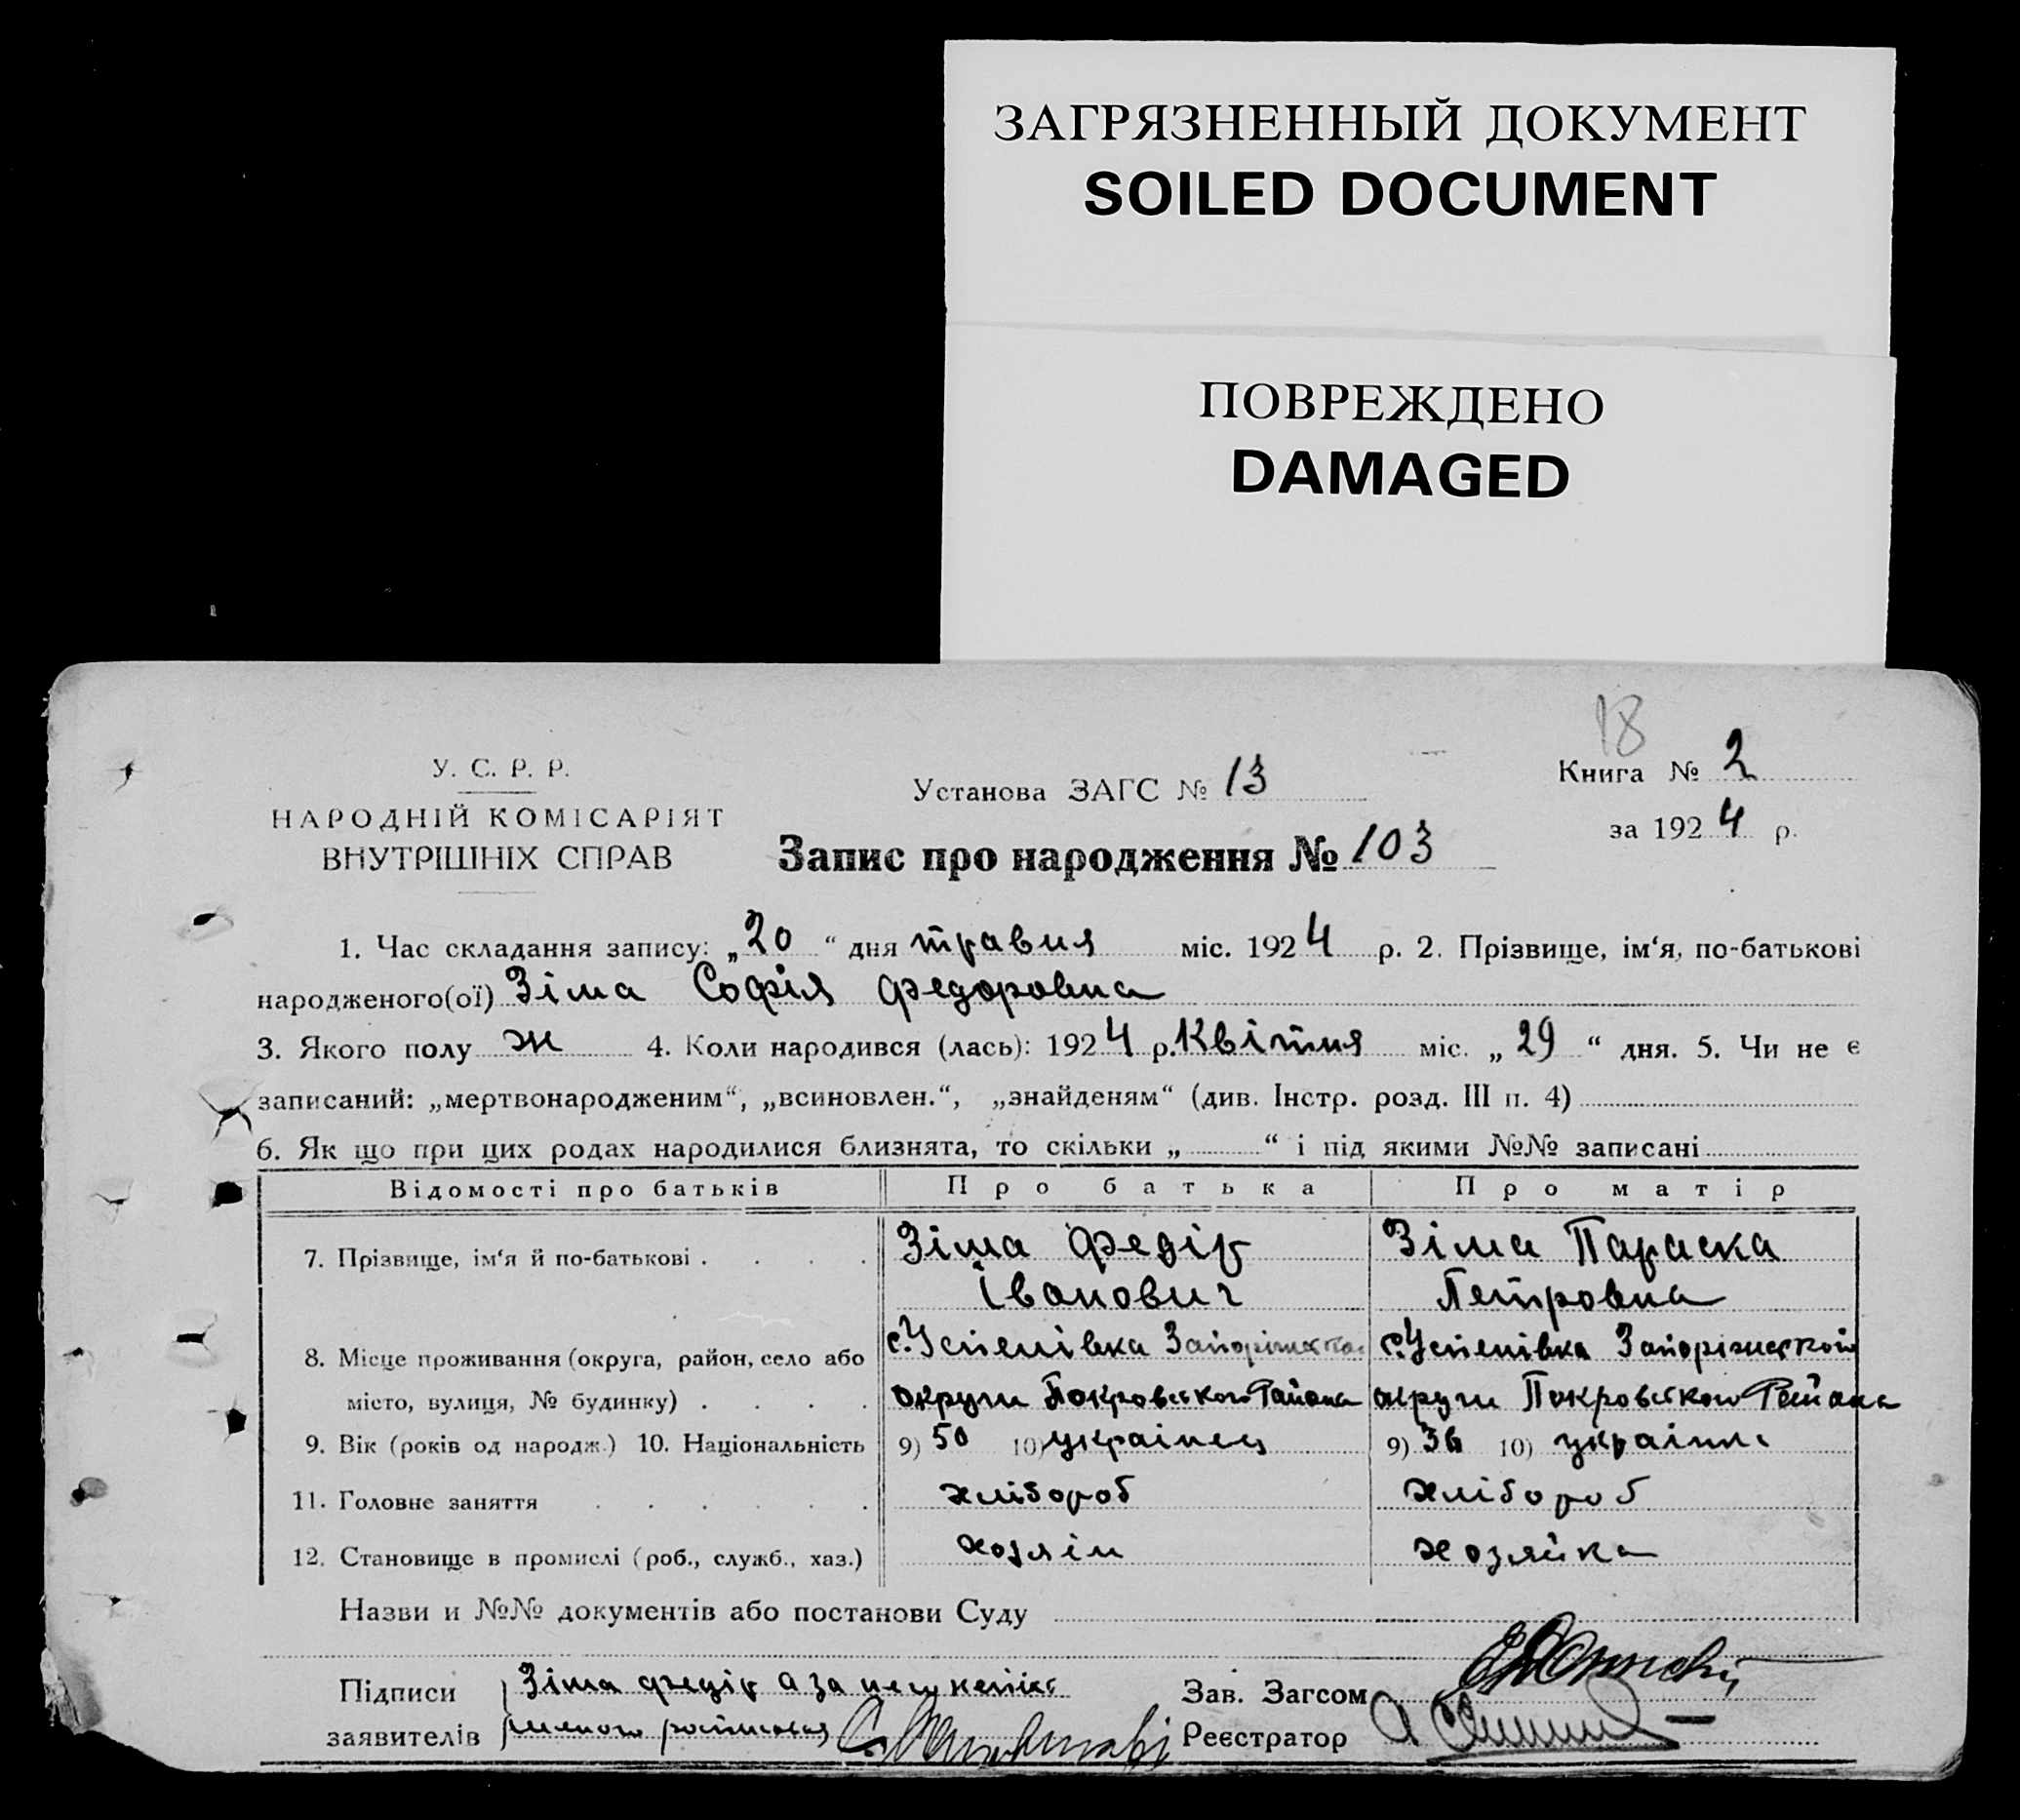 ЗАГРЯЗНЕННЫЙ ДОКУМЕНТ
SOILED DOCUMENT
ПОВРЕЖДЕНО
DAMAGED
18
У. С. Р. Р.
НАРОДНІЙ КОМІСАРІЯТ
ВНУТРІШНІХ СПРАВ
Установа ЗАГС № 13
Книга № 2
за 1924 р.
Запис про народження № 103
1. Час складання запису: „20“ дня травня міс. 1924 р. 2. Прізвище, ім‘я, по-батькові
народженого(ої) Зіма Софія Федоровна
3. Якого полу ж 4. Коли народився (лась): 1924 р. Квітня міс. „29“ дня. 5. Чи не є
записаний: „мертвонародженим“, „всиновлен.“, „знайденям“ (див. Інстр. розд. III п. 4)
6. Як що при цих родах народилися близнята, то скільки „ “ і під якими №№ записані
Відомості про батьків Про батька Про матір
7. Прізвище, ім‘я й по-батькові . . . . Зіма Федір Зіма Параска
Іванович Петровна
8. Місце проживання (округа, район, село або с. Успенівка с. Успенівка Запоріжської
місто, вулиця, № будинку) . . . . округи Покровського Района округи Покровського Района
9. Вік (років од народж.) 10. Національність 9) 50 10) українец 9) 36 10)
11. Головне заняття . . . . . . хлібороб хлібороб
12. Становище в промислі (роб., служб., хаз.) хозяін хозяйка
Назви и №№ документів або постанови Суду
Підписи Зіма Федір а за
заявителів
Зав. Загсом
Реєстратор